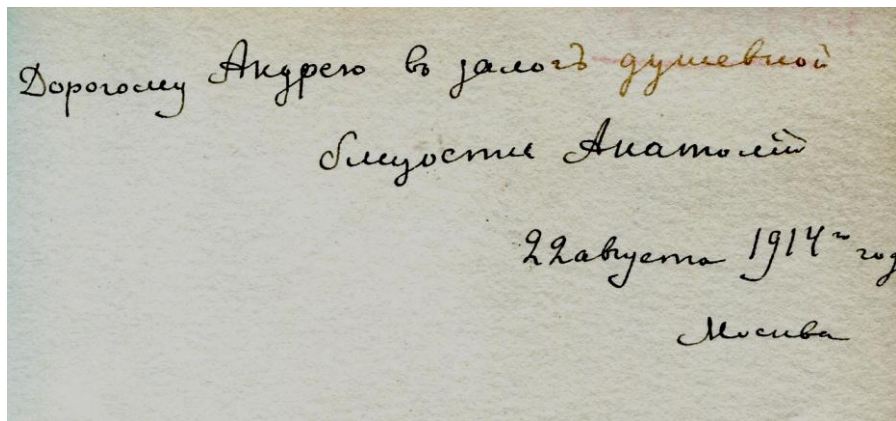 Дорогому Андрею въ залогъ душевной
близости Анатолій
22 августа 1914го год
Москва